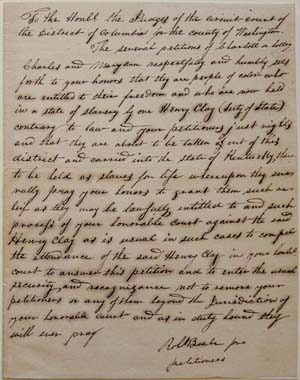 To the Honbl the Judges of the circuit court of
the District of Columbia for the county of Washington.
The several petitions of Charlotte a Lotty
Charles and Maryann respectfully and humbly sets
forth to your honors that they are people of color who
are entitled to their freedom and who are now held
in a state of slavery by one Henry Clay (Secty of State)
contrary to law and your petitioners just rights
and that they are about to be taken out of this
district and carried into the state of Kentucky, there
to be held as slaves for life whereupon they seve
rally pray your honors to grant them such re
lief as they may be lawfully entitled to and such
process of your honorable court against the said
Henry Clay as is usual in such cases to compel
the attendance of the said Henry Clay in your honbl
court to answer this petition and to enter the usual
security and recognizance not to remove your
petitioners or any of them beyond the Jurisdiction of
your honorable court and as in duty bound they
will ever pray
Robt Beale pro
petitioners